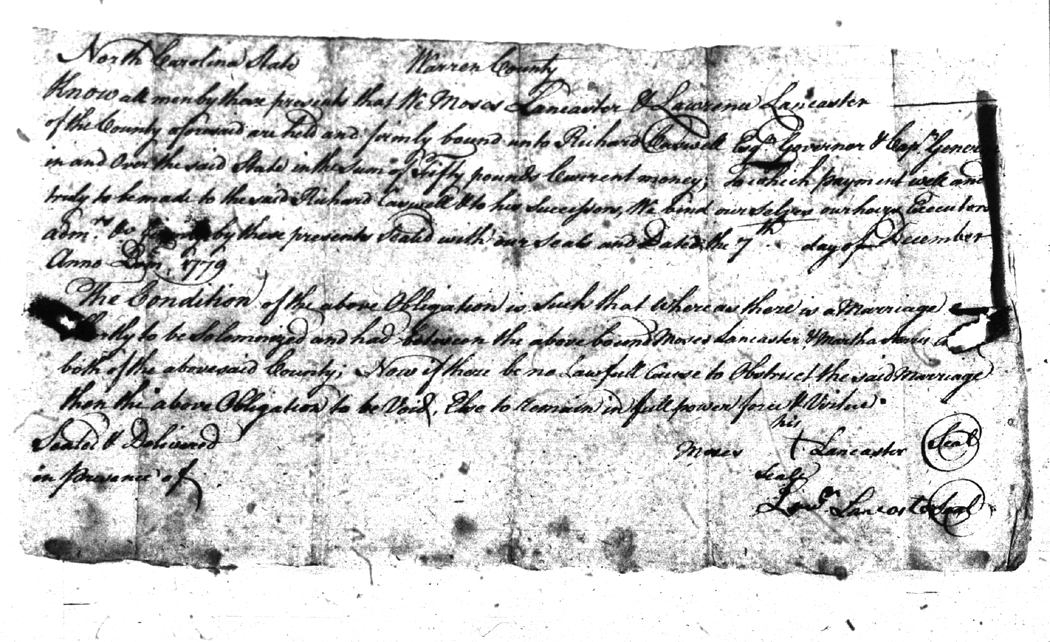 North Carolina State Warren County
Know all men by these presents that We Moses Lancaster & Lawrence Lancaster
of the County aforesaid are held and firmly bound unto Richard Caswell Esqr. Governor & Capn. Gener
in and Over the said State in the Sum of Fifty pounds Current money, to which payment well and
truly to be made to the said Richard Caswell & to his Successors, We bind our Selves our heirs Executors
Admrs. &c by these presents Sealed with our Seals and Dated the 7th day of December
Anno Dom. 1779
The Condition of the above Obligation is Such that Whereas there is a Marriage
to be Solemnized and had between the above bound Moses Lancaster & Martha
both of the abovesaid County; Now if there be no Lawfull Cause to Obstruct the said Marriage
then the above Obligation to be Void, Else to Remain in full power force & Virtue.
Sealed & Delivered
in presence of
his
Moses + Lancaster Seal
Lancaster Seal